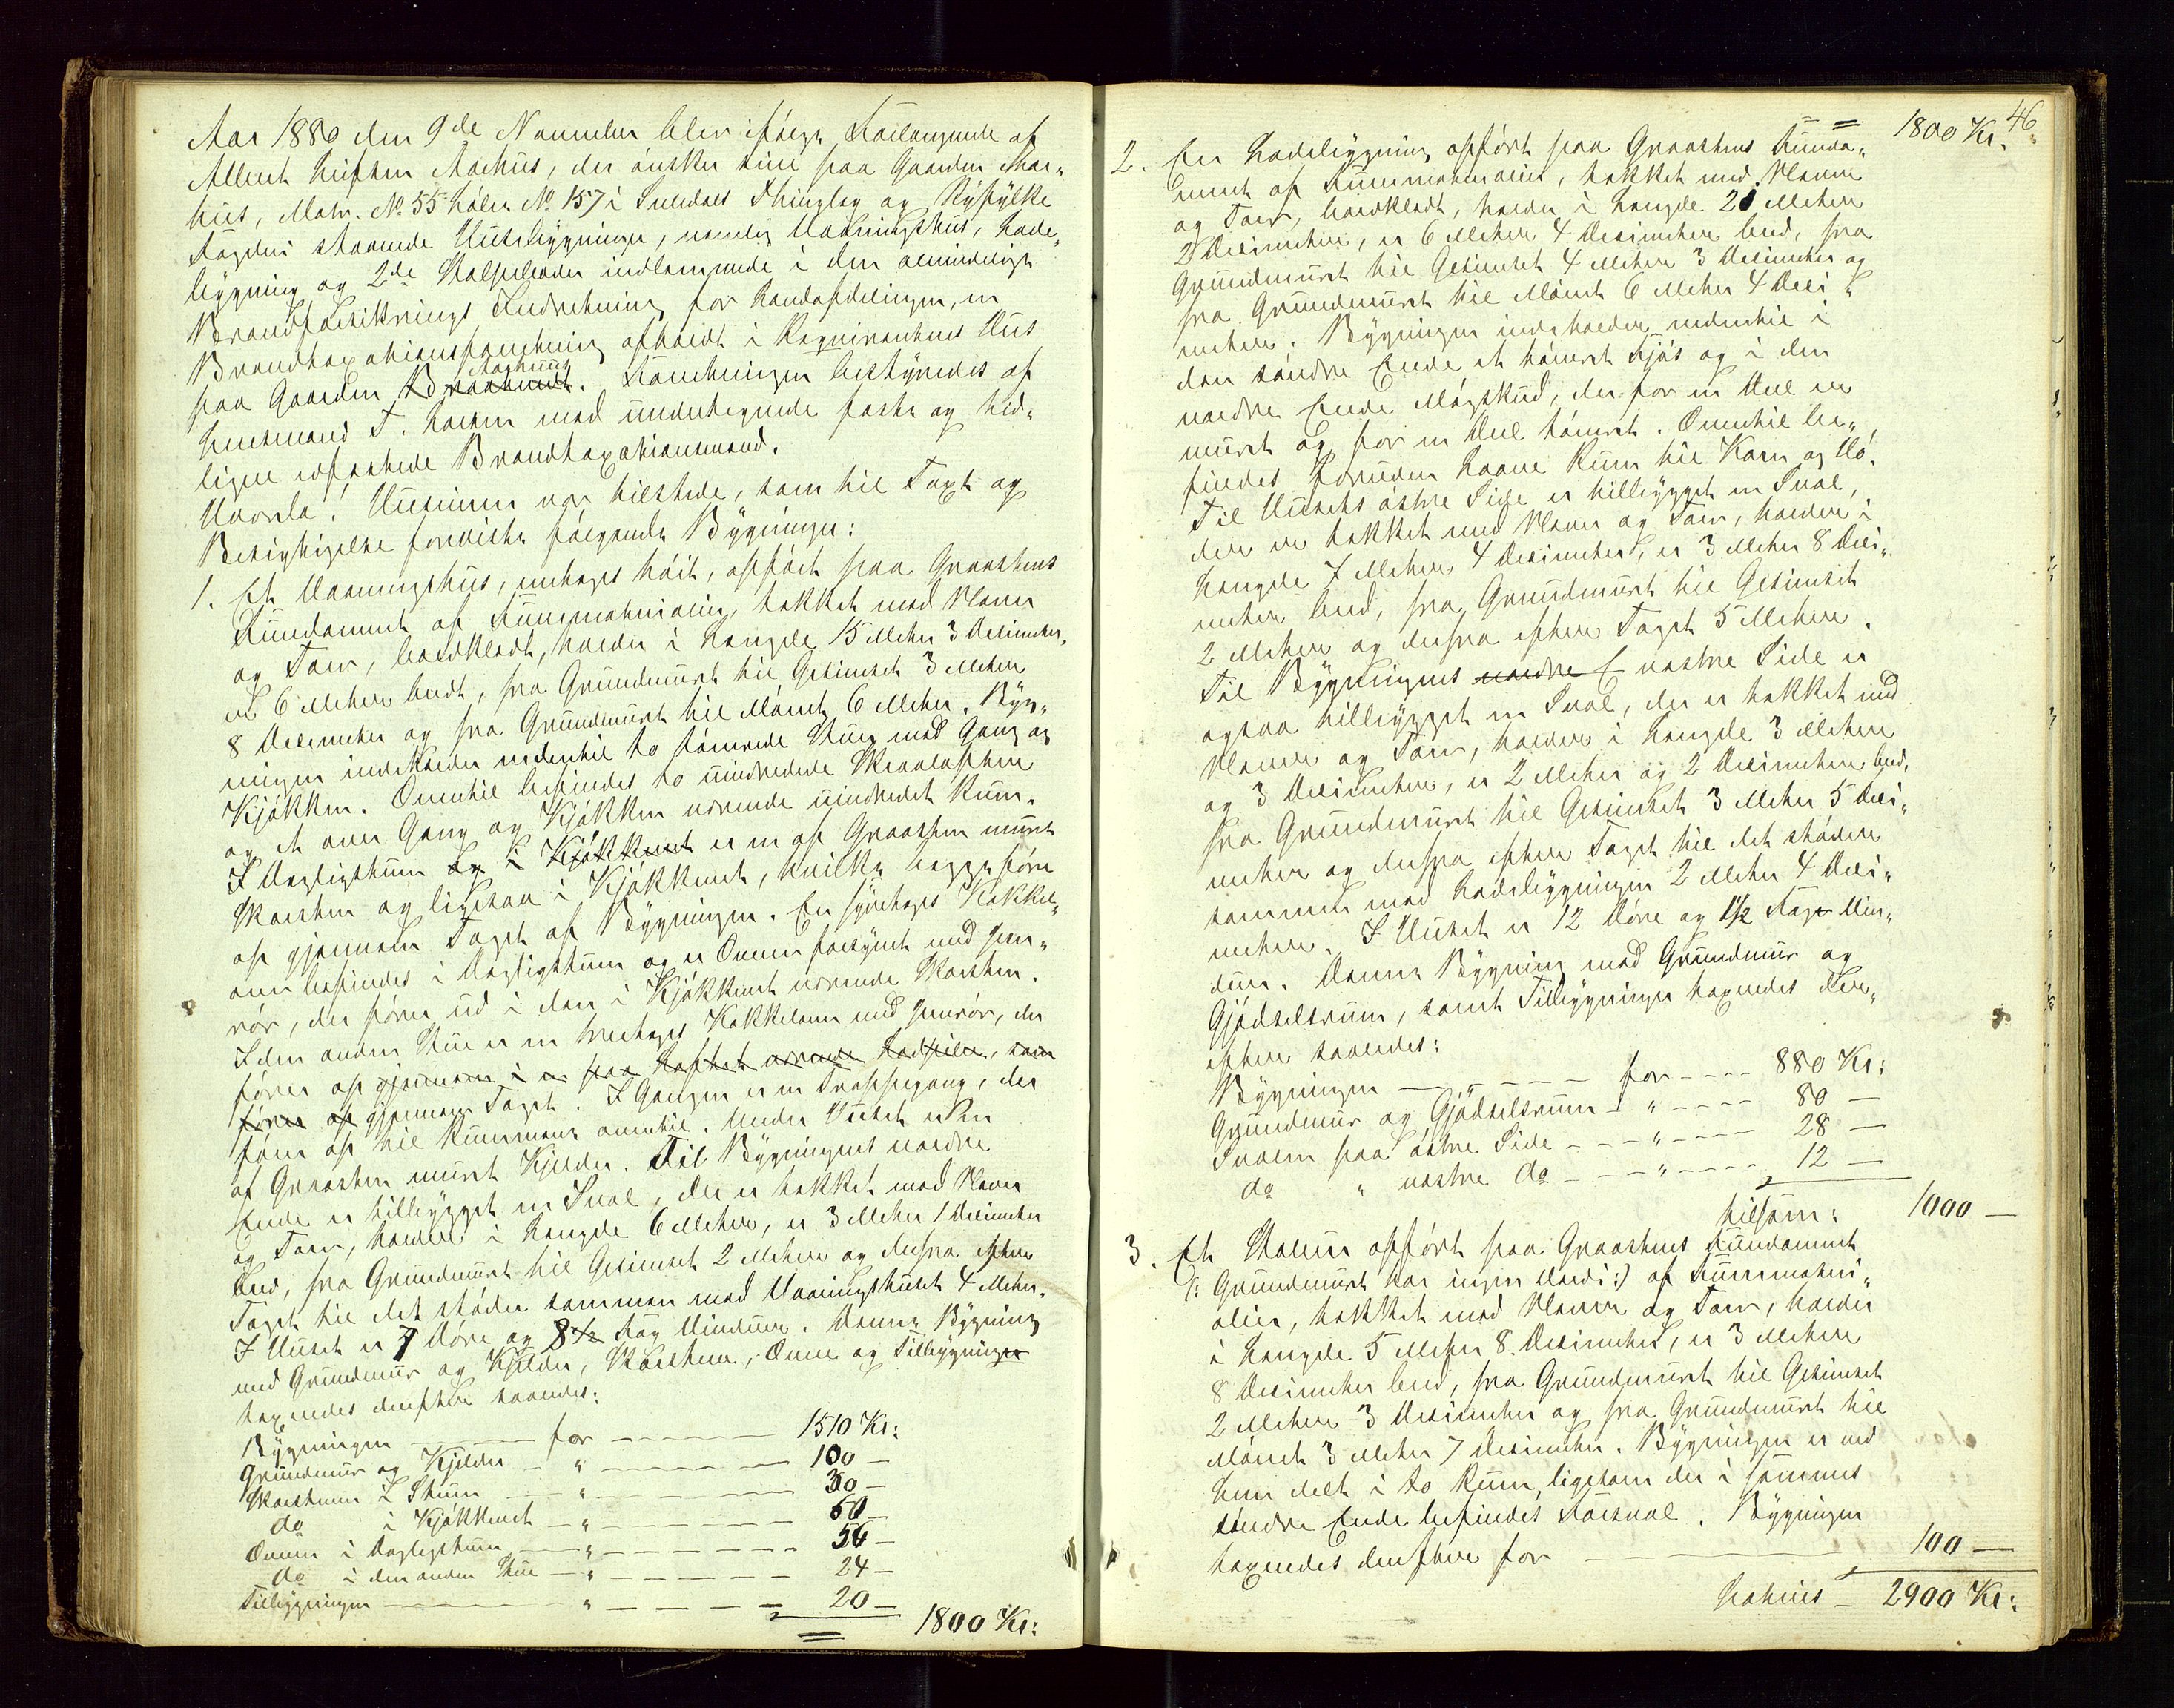 Aar 1880 den 9de November blev ifølge Forlangende af
Albert Aarhus, der ønsker sine paa Gaarden Aar-
hus, Matr. No 55 Løbe No 157 i Suledals Thinglag og Ryfylke
Fogderi staaende Husebygninger, nemlig Vaaningshus, Lade-
bygning og 2de Stalsboder indlemmede i den almindelige
Brandforsikrings Indretning for Landafdelingen, en
Brandtaxationsforretning afholdt i Reqvirentens Hus
paa Gaarden Aarhuus. Forretningen bestyredes af
Lensmand T. Larsen med undertegnede faste og tid-
ligere edfæstede Brandtaxationsmænd.
Hvorda! Husejeren var tilstede, som til Taxt og
Besigtigelse foreviste følgende Bygninger:
1. Et Vaaningshus, enetages høit, opført paa Graastens
Fundament af Furumaterialier, tækket med Næver
og Torv, bordklædt, holder i Længde 15 Meter 3 Desimeter,
er 6 Meter bredt, fra Grundmuren til Gesimset 3 Meter
8 Desimeter og fra Grundmuren til Mønet 6 Meter. Byg-
ningen indeholder nedentil to tømrede Stuer med Gang og
Kjøkken. Oventil befindes to uindredede Skraalofter
og et over Gang og Kjøkken værende uindredet Rum.
I Dagligstuen og i Kjøkkenet er en af Graasten muret
Skorsten og ligesaa i Kjøkkenet, hvilke begge fører
op gjennem Taget af Bygningen. En toetages Kakkel-
ovn befindes i Dagligstuen og er Ovnen forsynet med Jern-
rør, der fører ud i den i Kjøkkenet værende Skorsten.
I den anden Stue er en treetages Kakkelovn med Jernrør, der
fører op gjennem i en paa Loftet værende Ladpibe, som
fører op gjennem Taget. I Gangen er en Trappegang, der
fører op til Rummene oventil. Under Huset er en
af Graasten muret Kjelder. Til Bygningens nordre
Ende er tilbygget en Sval, der er tækket med Næver
og Torv, holder i Længde 6 Meter, er 3 Meter 1 Desimeter
bred, fra Grundmuren til Gesimset 2 Meter og derfra efter
Taget til det støder sammen med Vaaningshuset 4 Meter.
I Huset er 7 Døre og 8 1/2 Fag Vinduer. Denne Bygning
med Grundmur og Kjelder, Skorstene, Ovne og Tilbygninger
taxeredes derefter saaledes:
Bygningen — for — 1510 Kr:
Grundmur og Kjelder — " — 100 —
Skorstenen i Stuen — " — 30 —
do i Kjøkkenet — " — 60 —
Ovnen i Dagligstuen — " — 56 —
do i den anden Stue — " — 24 —
Tilbygningen — " — 20 —
1800 Kr:
46
1800 Kr.
2. En Ladebygning opført paa Graastens Funda-
ment af Furumaterialier, tækket med Næver
og Torv, bordklædt, holder i Længde 21 Meter
2 Desimeter, er 6 Meter 4 Desimeter bred, fra
Grundmuren til Gesimset 4 Meter 3 Desimeter og
fra Grundmuren til Mønet 6 Meter 4 Desi-
meter. Bygningen indeholder nedentil i
den søndre Ende et tømret Fjøs og i den
nordre Ende Møgskud, der for en Deel er
muret og for en Deel tømret. Oventil be-
findes foruden Laave Rum til Korn og Hø.
Til Husets østre Side er tilbygget en Sval,
der er tækket med Næver og Torv, holder i
Længde 7 Meter 4 Desimeter, er 3 Meter 8 Desi-
meter bred, fra Grundmuren til Gesimset
2 Meter og derfra efter Taget 5 Meter.
Til Bygningens nordre E vestre Side er
ogsaa tilbygget en Sval, der er tækket med
Næver og Torv, holder i Længde 3 Meter
og 3 Desimeter, er 2 Meter og 2 Desimeter bred,
fra Grundmuren til Gesimset 3 Meter 5 Desi-
meter og derfra efter Taget til det støder
sammen med Ladebygningen 2 Meter 4 Desi-
meter. I Huset er 12 Døre og 1 1/2 Fag Vin-
duer. Denne Bygning med Grundmur og
Gjødselsrum, samt Tilbygninger taxeredes der-
efter saaledes:
Bygningen — for — 880 Kr:
Grundmur og Gjødselsrum — " — 80 —
Svalen paa østre Side — " — 28 —
do " vestre do — " — 12 —
tilsam: 1000 —
3. Et Stalhus opført paa Graastens Fundament
(: Grundmuren har ingen Værdi :) af Furumateri-
alier, tækket med Næver og Torv, holder
i Længde 5 Meter 8 Desimeter, er 3 Meter
8 Desimeter bred, fra Grundmuren til Gesimset
2 Meter 3 Desimeter og fra Grundmuren til
Mønet 3 Meter 7 Desimeter. Bygningen er ved
delt i to Rum, ligesom der i sammes
søndre Ende befindes Forsval. Bygningen
taxeredes derefter for — 100 —
Latus — 2900 Kr: